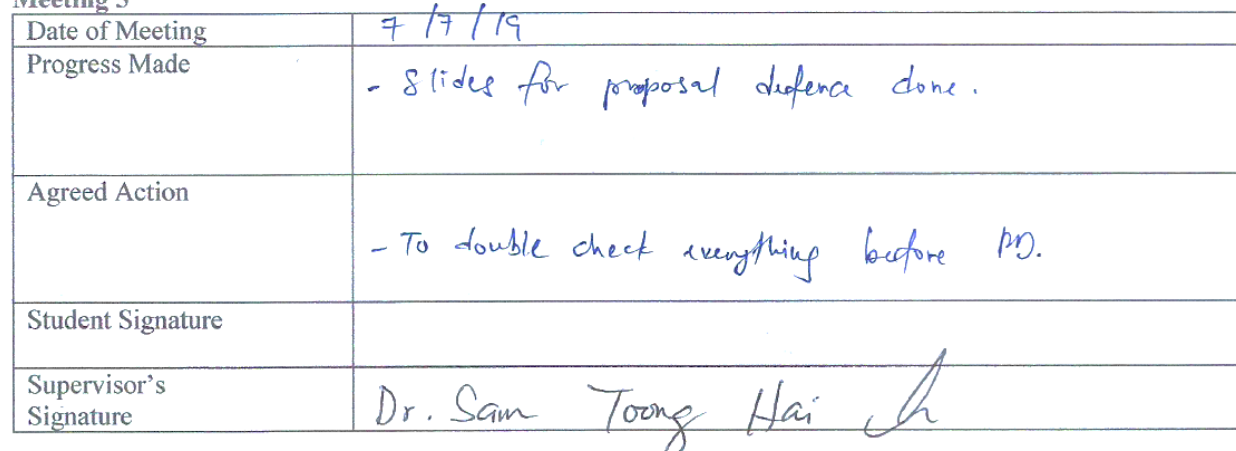 Meeting 3
Date of Meeting 7/7/19
Progress Made
- Slides for proposal defence done.
Agreed Action
- To double check everything before PD.
Student Signature
Supervisor's
Signature
Dr. Sam Toong Hai